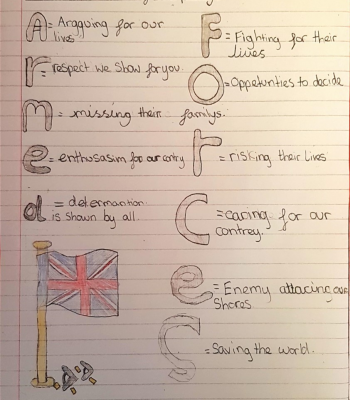 A = Aragguing for our
lives
r = respect we show for you.
m = missing their familys.
e = enthusasim for our entry
d = determanition
is shown by all.
F = Fighting for their
lives
O = Oppetunties to decide
r = risking their lives
C = caring for our
contrey.
e = Enemy attacing our
Shores
S = Saving the world.